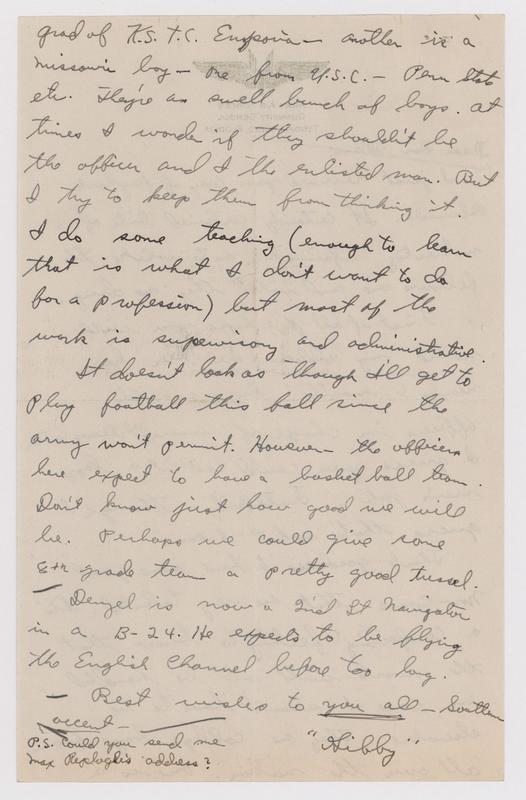 grad of K.S.T.C. Emporia — another is a
Missouri boy — one from U.S.C. — Penn State
etc. They're as swell bunch of boys. At
times I wonder if they shouldn't be
the officer and I the enlisted man. But
I try to keep them from thinking it.
I do some teaching (enough to learn
that is what I don't want to do
for a profession) but most of the
work is supervisory and administrative.
It doesn't look as though I'll get to
play football this fall since the
army won't permit. However — the officers
here expect to have a basket ball team.
Don't know just how good we will
be. Perhaps we could give some
8th grade team a pretty good tussel.
Denzel is now a 2nd Lt Navigator
in a B-24. He expects to be flying
the English Channel before too long.
Best wishes to you all — Southern
accent —
"Hibby"
P.S. Could you send me
Max Replogle's address?